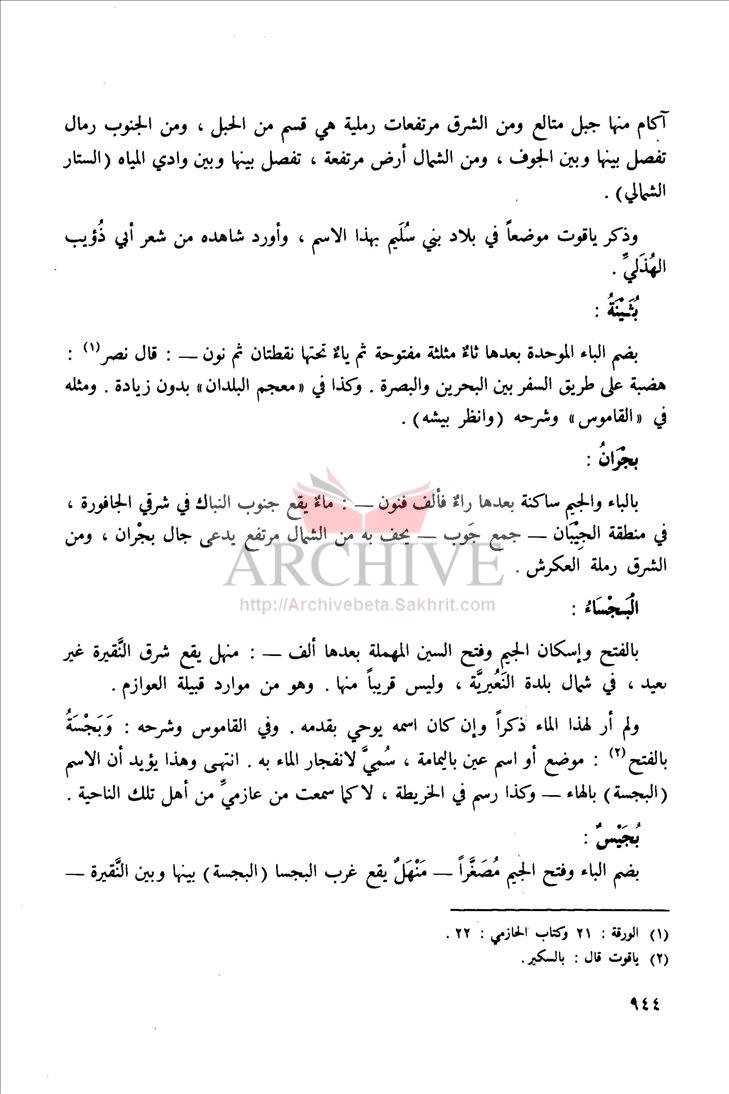 آكام منها جبل متالع ومن الشرق مرتفعات رملية هي قسم من الحبل ، ومن الجنوب رمال
تفصل بينها وبين الجوف ، ومن الشمال أرض مرتفعة ، تفصل بينها وبين وادي المياه (الستار
الشمالي) .
وذكر ياقوت موضعاً في بلاد بني سُلَيم بهذا الاسم ، وأورد شاهده من شعر أبي ذُؤيب
الهُذَليِّ .
بُثَيْنَةُ :
بضم الباء الموحدة بعدها ثاءٌ مثلثة مفتوحة ثم ياءٌ تحتها نقطتان ثم نون — : قال نصر(١) :
هضبة على طريق السفر بين البحرين والبصرة . وكذا في «معجم البلدان» بدون زيادة . ومثله
في «القاموس» وشرحه (وانظر بيشه) .
بجْرَانُ :
بالباء والجيم ساكنة بعدها راءٌ فألف فنون — : ماءٌ يقع جنوب النباك في شرقي الجافورة ،
في منطقة الجِيْبَان — جمع جَوب — يحف به من الشمال مرتفع يدعى جال بجْران ، ومن
الشرق رملة العكرش .
ARCHIVE
http://Archivebeta.Sakhrit.com
الْبَجْسَاءُ :
بالفتح وإسكان الجيم وفتح السين المهملة بعدها ألف — : منهل يقع شرق النَّقيرة غير
بعيد ، في شمال بلدة النَعُيريَّة ، وليس قريباً منها . وهو من موارد قبيلة العوازم .
ولم أر لهذا الماء ذكراً وإن كان اسمه يوحي بقدمه . وفي القاموس وشرحه : وَبَجْسَةُ
بالفتح(٢) : موضع أو اسم عين باليمامة ، سُميَّ لانفجار الماء به . انتهى وهذا يؤيد أن الاسم
(البجسة) بالهاء — وكذا رسم في الخريطة ، لا كما سمعت من عازميِّ من أهل تلك الناحية .
بُجَيْسٌ :
بضم الباء وفتح الجيم مُصَغَّراً — مَنْهَلٌ يقع غرب البجسا (البجسة) بينها وبين النَّقيرة —
(١) الورقة : ٢١ وكتاب الحازمي : ٢٢ .
(٢) ياقوت قال : بالسكير .
٩٤٤